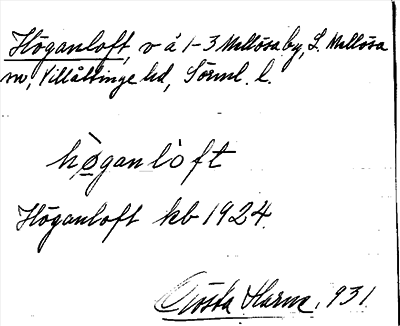 Höganloft, v å 1-3 Mellösa by, L. Mellösa
sn, Villåttinge hd, Sörml. l.
hø̀ganlòft
Höganloft kb 1924.
Gösta Harne, 931